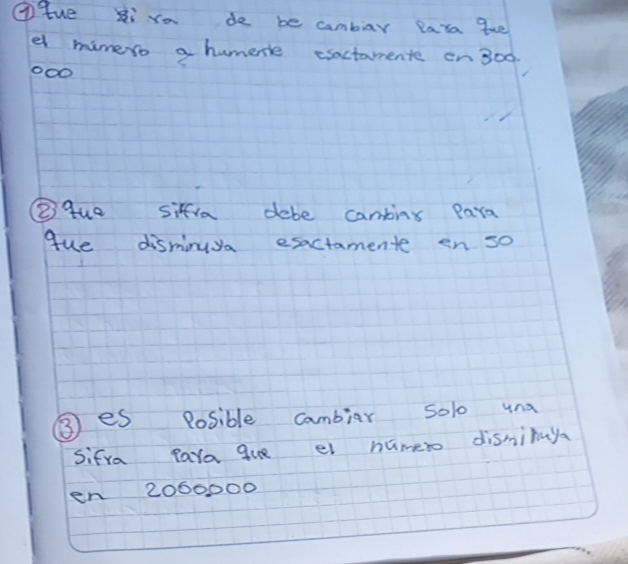 ① que sifra de be cambiar para que
el número a humente esactamente en 300.
000
② que siffra debe cambiar para
que disminuya esactamente en 50
③ es posible cambiar solo una
sifra para que el número disminuya
en 2000000